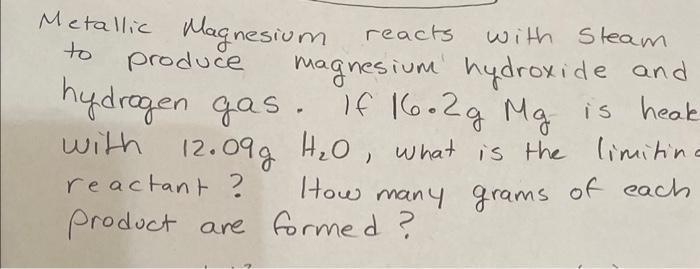 Metallic Magnesium reacts with steam
to produce magnesium hydroxide and
hydrogen gas. If 16.2g Mg is heat
with 12.09g H₂O, what is the limiting
reactant? How many grams of each
product are formed?